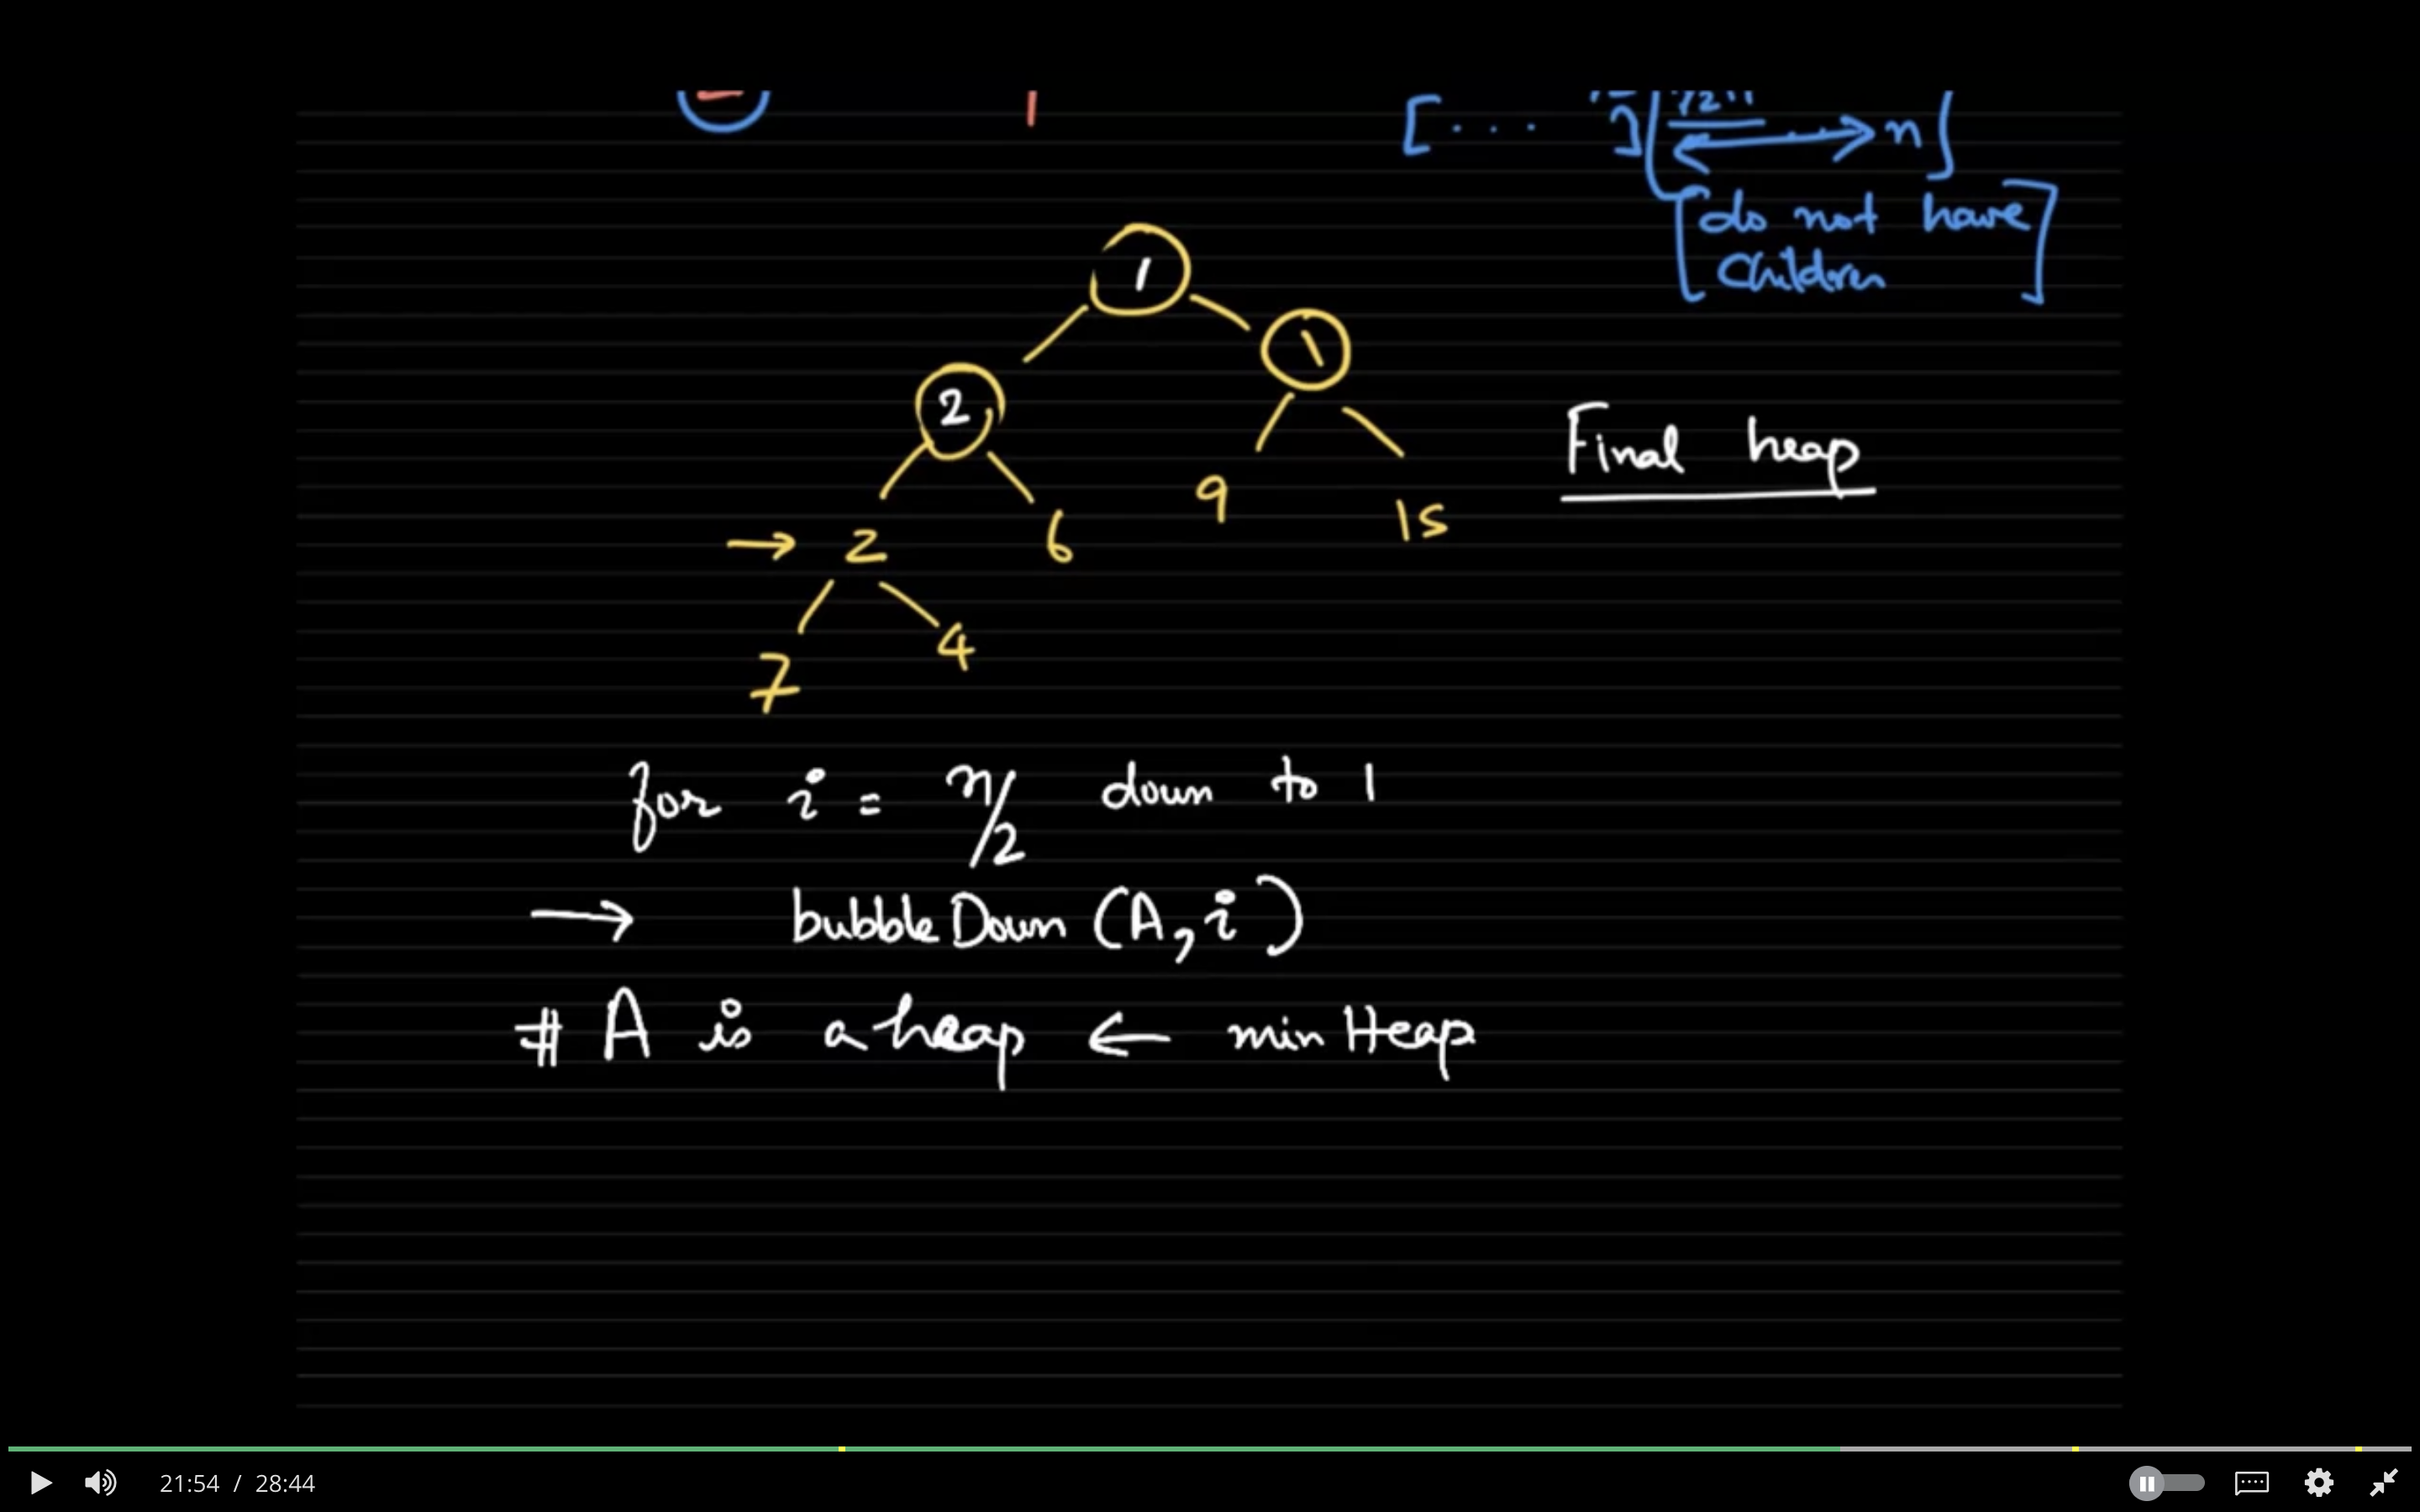 [ . . . ] n ]
[ do not have
children ]
1
1
2
Final heap
9
15
→ 2
6
7
4
for i = n/2 down to 1
→ bubbleDown (A, i)
# A is a heap ← minHeap
21:54 / 28:44